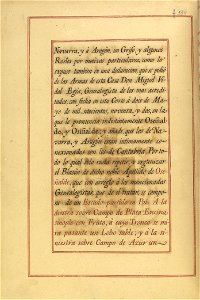 Navarra, y à Aragon, un Grifo, y algunas
Reales por motivos particulares, como lo
expuso tambien en una declaracion, que se pidió
de las Armas de esta Casa Don Miguel Vi-
dal Egea, Genealogista de los mas acredi-
tados, con fecha en esta Corte à doce de Ma-
yo de mil setecientos, noventa, y dos, en la
que le pronuncia indistintamente Oseñal-
de, y Osiñalde, y añade, que los de Nava-
rra, y Aragon están intimamente co-
nexionados con los de Cantabria. Por to-
do lo qual
el Blasón de dicho noble Apellido de Ose-
ñalde, que con arreglo à los mencionados
Genealogistas, que de él tratan, se compo-
ne de un Escudo partido en Palo. A la
diestra sobre Campo de Plata
con Fruto, à cuyo Tronco se mi-
ra pasante un Lobo Sable; y à la si-
niestra sobre Campo de Azur un